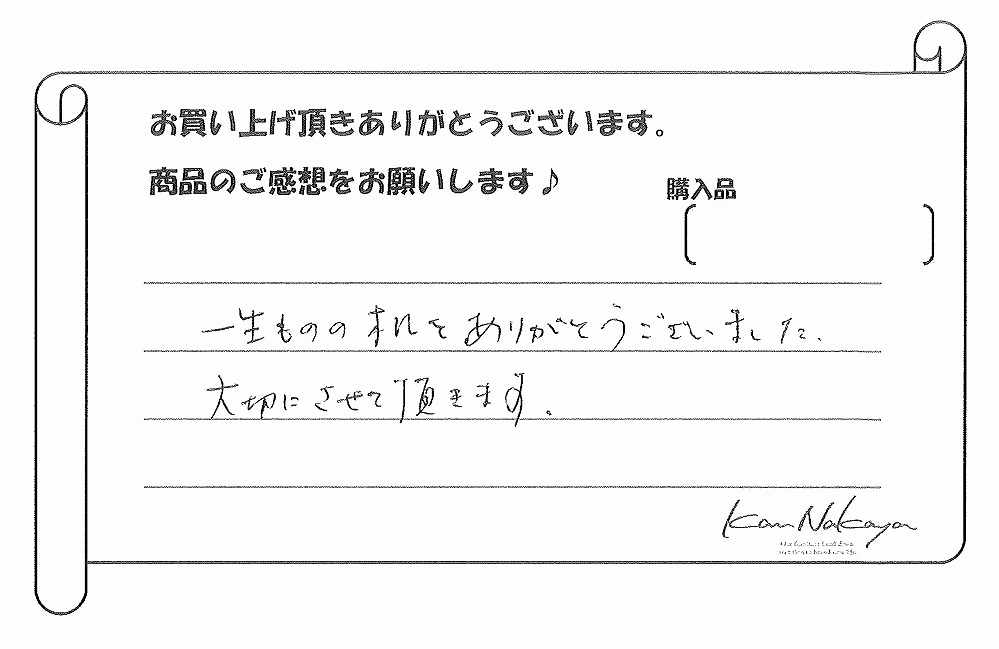 お買い上げ頂きありがとうございます。
商品のご感想をお願いします♪
購入品
一生ものの机をありがとうございました.
大切にさせて頂きます.
Kan Nakaya